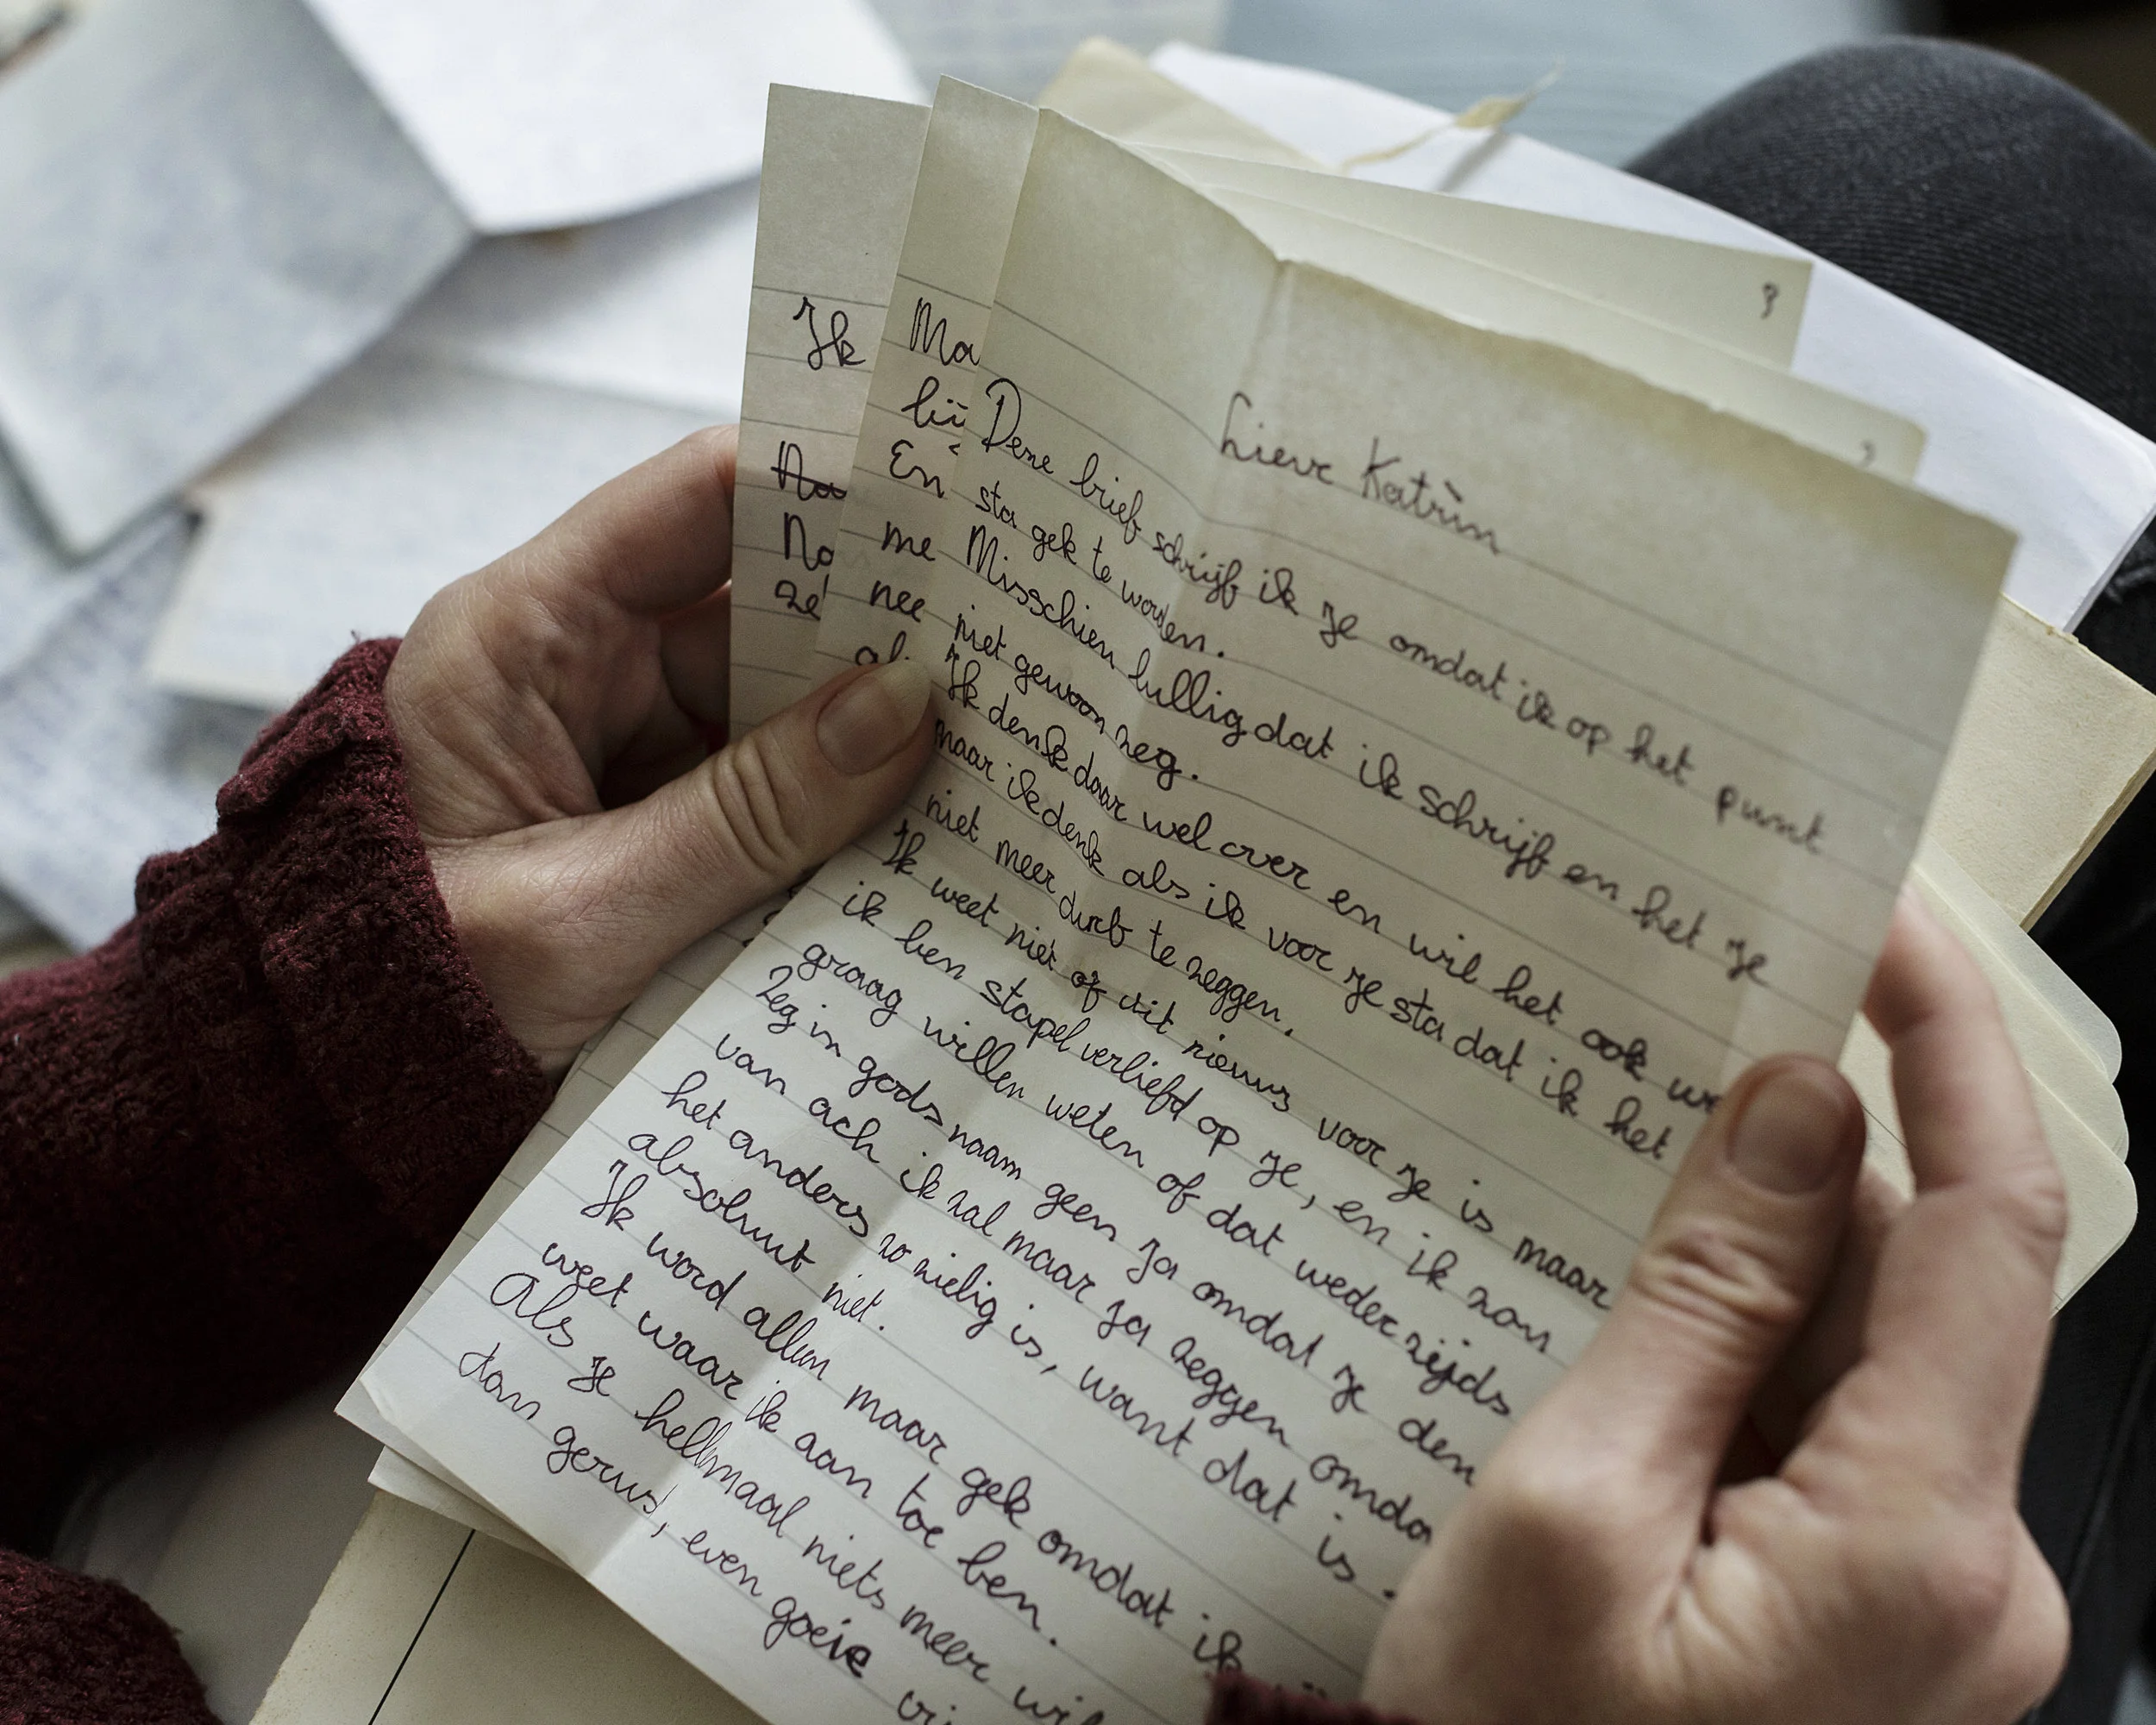 Lieve Katrìn
Deze brief schrijf ik je omdat ik op het punt
sta gek te worden.
Misschien lullig dat ik schrijf en het je
niet gewoon zeg.
Ik denk daar wel over en wil het ook
maar ik denk als ik voor je sta dat ik het
niet meer durb te zeggen.
Ik weet niet of dit nieuws voor je is maar
ik ben stapel verliefd op je, en ik zou
graag willen weten of dat weder zijds
Zeg in gods naam geen ja omdat je den
van ach ik zal maar ja zeggen omda
het anders zo zielig is, want dat is
absoluut niet.
Ik word allen maar gek omdat ik
weet waar ik aan toe ben.
Als je hellmaal niets meer wil
dan gerust, even goeie
Ik
No
ze
Ma
bij
En
me
nee
al